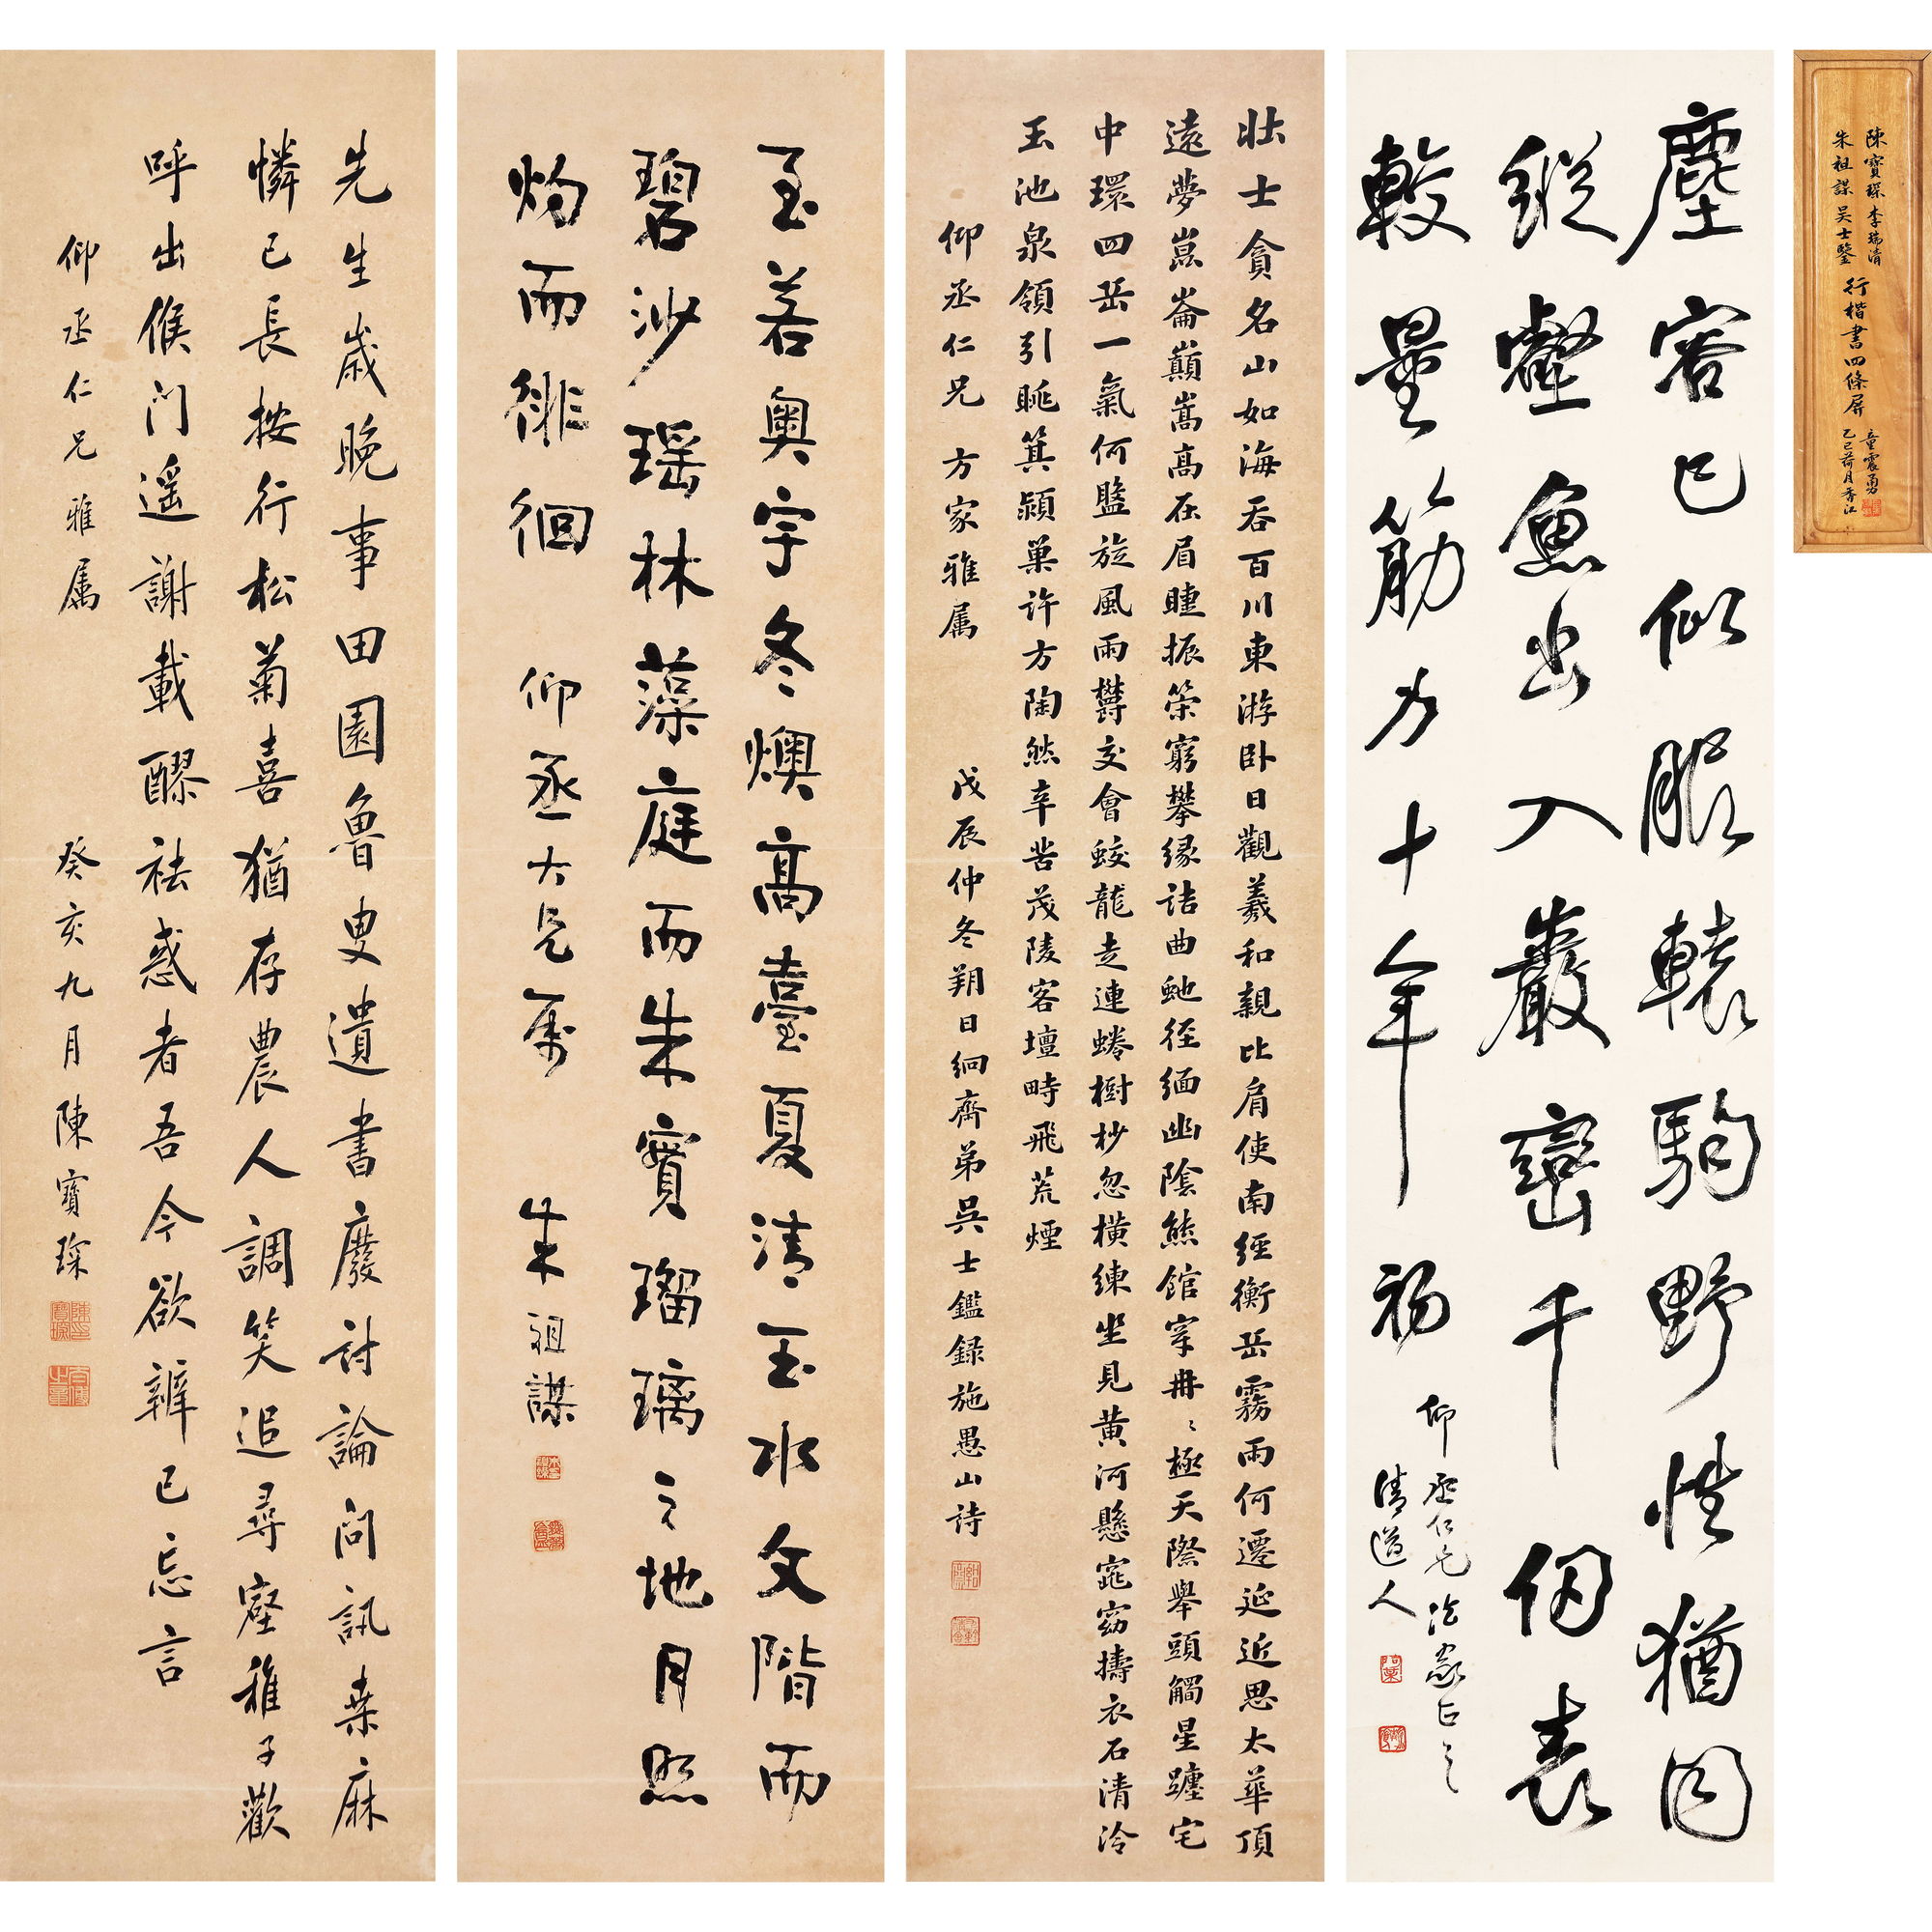 陳寶琛李瑞清
朱祖謀吴士鑒
行楷書四條屏
童震勇
乙巳荷月香江
塵容已似服轅駒野性猶同
縱壑魚出入巖巒千仞表
較量筋力十年初
仰丞仁兄法家正之
清道人
壯士貪名山如海吞百川東游卧日觀羲和親比肩使南經衡岳霧雨何遷延近思太華頂
遠夢崑崙巔嵩高在眉睫振策窮攀緣詰曲虵徑緬幽陰熊館穿冉〻極天際舉頭觸星躔宅
中環四岳一氣何盬旋風雨欝交會蛟龍走連蜷樹杪忽橫練坐見黄河懸窕窈擣衣石清泠
玉池泉領引眺箕潁巢許方陶然辛苦茂陵客壇畤飛荒煙
仰丞仁兄方家雅属
戊辰仲冬朔日絅齋弟吳士鑑録施愚山詩
至若奥宇冬燠高臺夏清玉水文階而
碧沙瑶林藻庭而朱實瑠璃之地月照
灼而徘徊
仰丞大兄属
朱祖謀
先生歲晚事田園魯叟遺書廢討論問訊桒麻
憐已長按行松菊喜猶存農人調笑追尋壑稚子歡
呼出候门遥謝載醪袪惑者吾今欲辨已忘言
仰丞仁兄雅属
癸亥九月陳寶琛